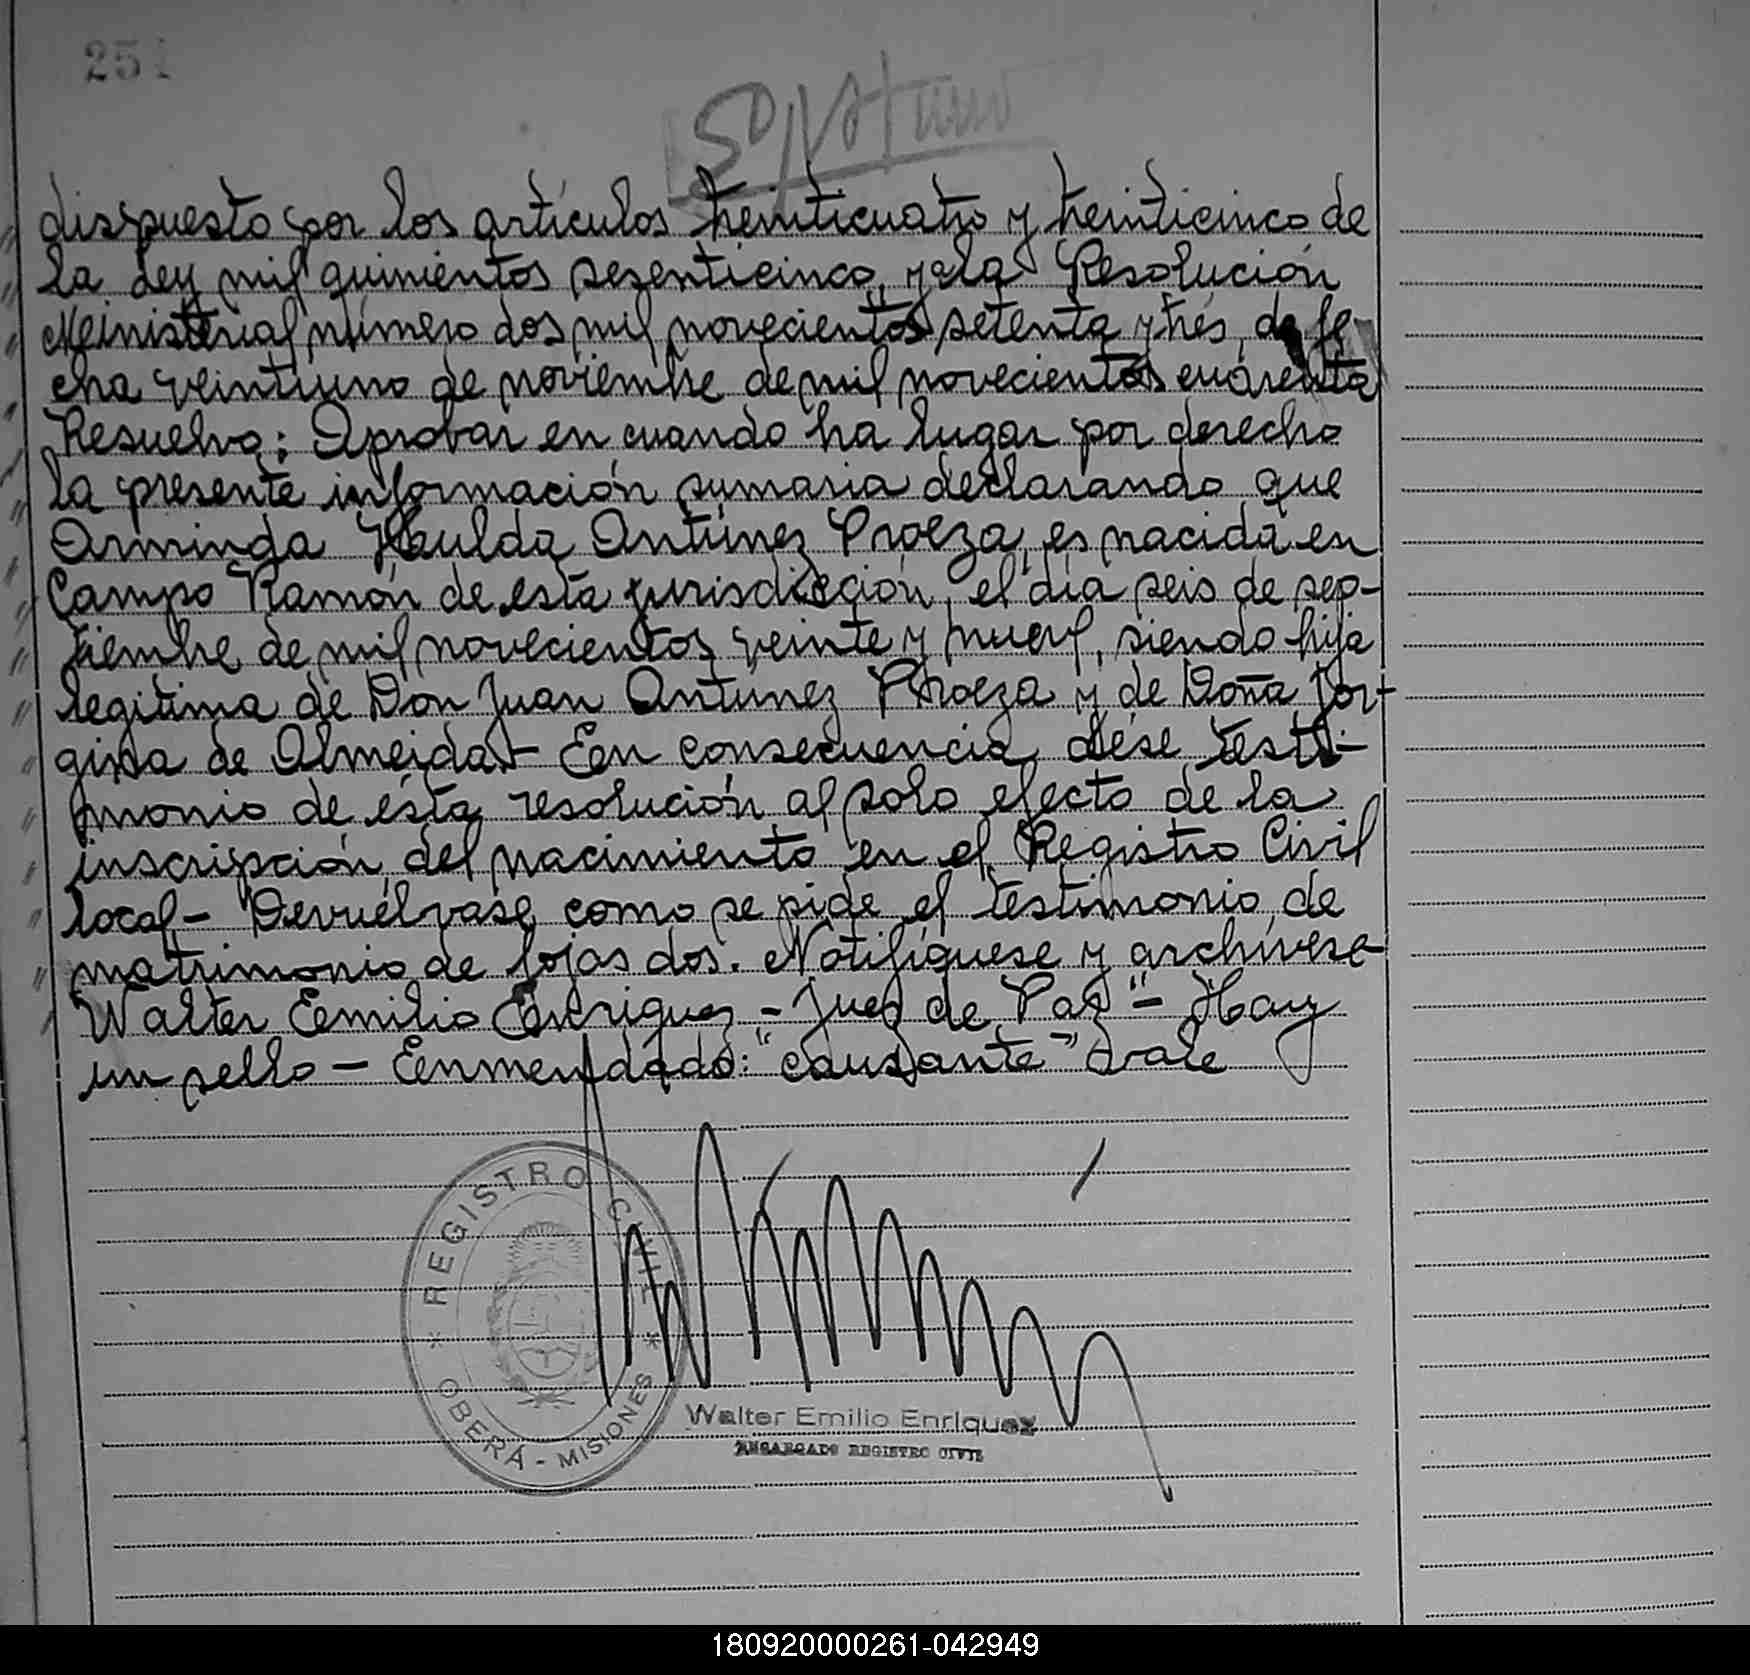 251
dispuesto por los artículos treinticuatro y treinticinco de
la Ley mil quinientos sesenticinco, y a la Resolución
Ministerial número dos mil novecientos setenta y trés, de fe
cha veintiuno de noviembre de mil novecientos cuarenta
Resuelvo: Aprobar en cuando ha lugar por derecho
la presente información sumaria declarando que
Arminda Haulda Antúnez Proeza, es nacida en
Campo Ramón de esta jurisdicción, el día seis de sep-
tiembre de mil novecientos veinte y nueve, siendo hija
legitima de Don Juan Antunez Proeza y de Doña Jor-
gina de Almeida.- En consecuencia, dése testi-
monio de ésta resolución al solo efecto de la
inscripción del nacimiento en el Registro Civil
local- Devuélvase como se pide el testimonio de
matrimonio de fojas dos. Notifíquese y archívese-
Walter Emilio Enriquez - Juez de Paz"- Hay
un sello - Enmendado: "causante" vale
REGISTRO CIVIL
* OBERÁ - MISIONES *
Walter Emilio Enriquez
ENCARGADO REGISTRO CIVIL
180920000261-042949